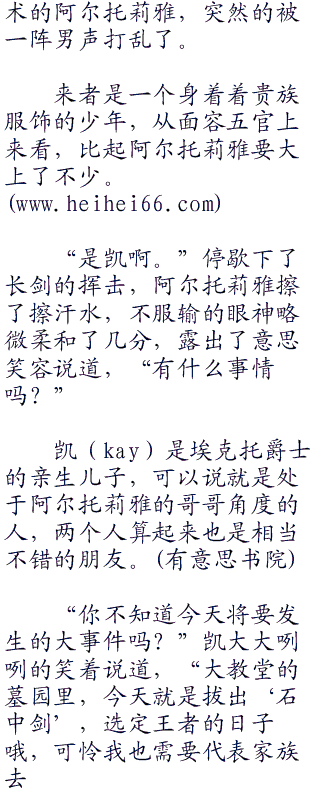 术的阿尔托莉雅，突然的被
一阵男声打乱了。
来者是一个身着着贵族
服饰的少年，从面容五官上
来看，比起阿尔托莉雅要大
上了不少。
(www.heihei66.com)
“是凯啊。”停歇下了
长剑的挥击，阿尔托莉雅擦
了擦汗水，不服输的眼神略
微柔和了几分，露出了意思
笑容说道，“有什么事情
吗？”
凯（kay）是埃克托爵士
的亲生儿子，可以说就是处
于阿尔托莉雅的哥哥角度的
人，两个人算起来也是相当
不错的朋友。(有意思书院)
“你不知道今天将要发
生的大事件吗？”凯大大咧
咧的笑着说道，“大教堂的
墓园里，今天就是拔出‘石
中剑’，选定王者的日子
哦，可怜我也需要代表家族
去